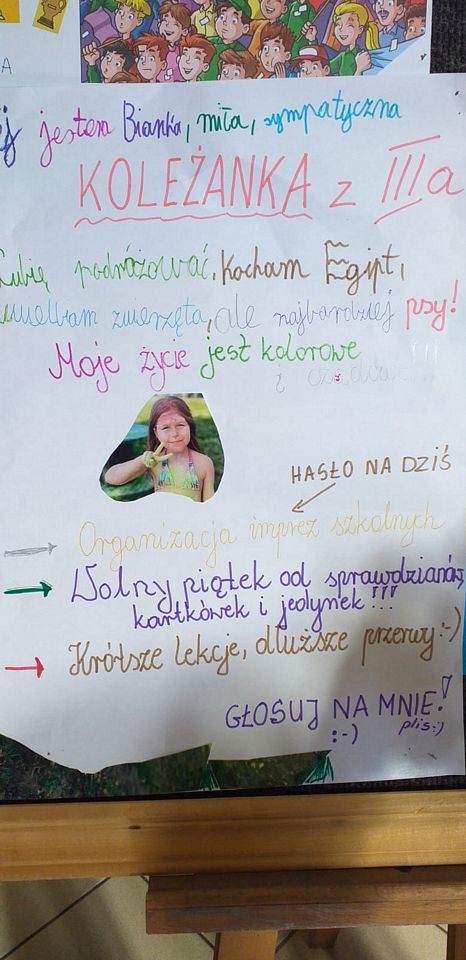 A
jestem Bianka, miła, sympatyczna
KOLEŻANKA z IIIa
Lubię podróżować, Kocham Egipt,
uwielbiam zwierzęta, ale najbardziej psy!
Moje życie jest kolorowe
i
HASŁO NA DZIŚ
Organizacja imprez szkolnych
Wolny piątek od sprawdzianów,
kartkówek i jedynek!!!
Krótsze lekcje, dłuższe przerwy:-)
GŁOSUJ NA MNIE!
:-) plis:)